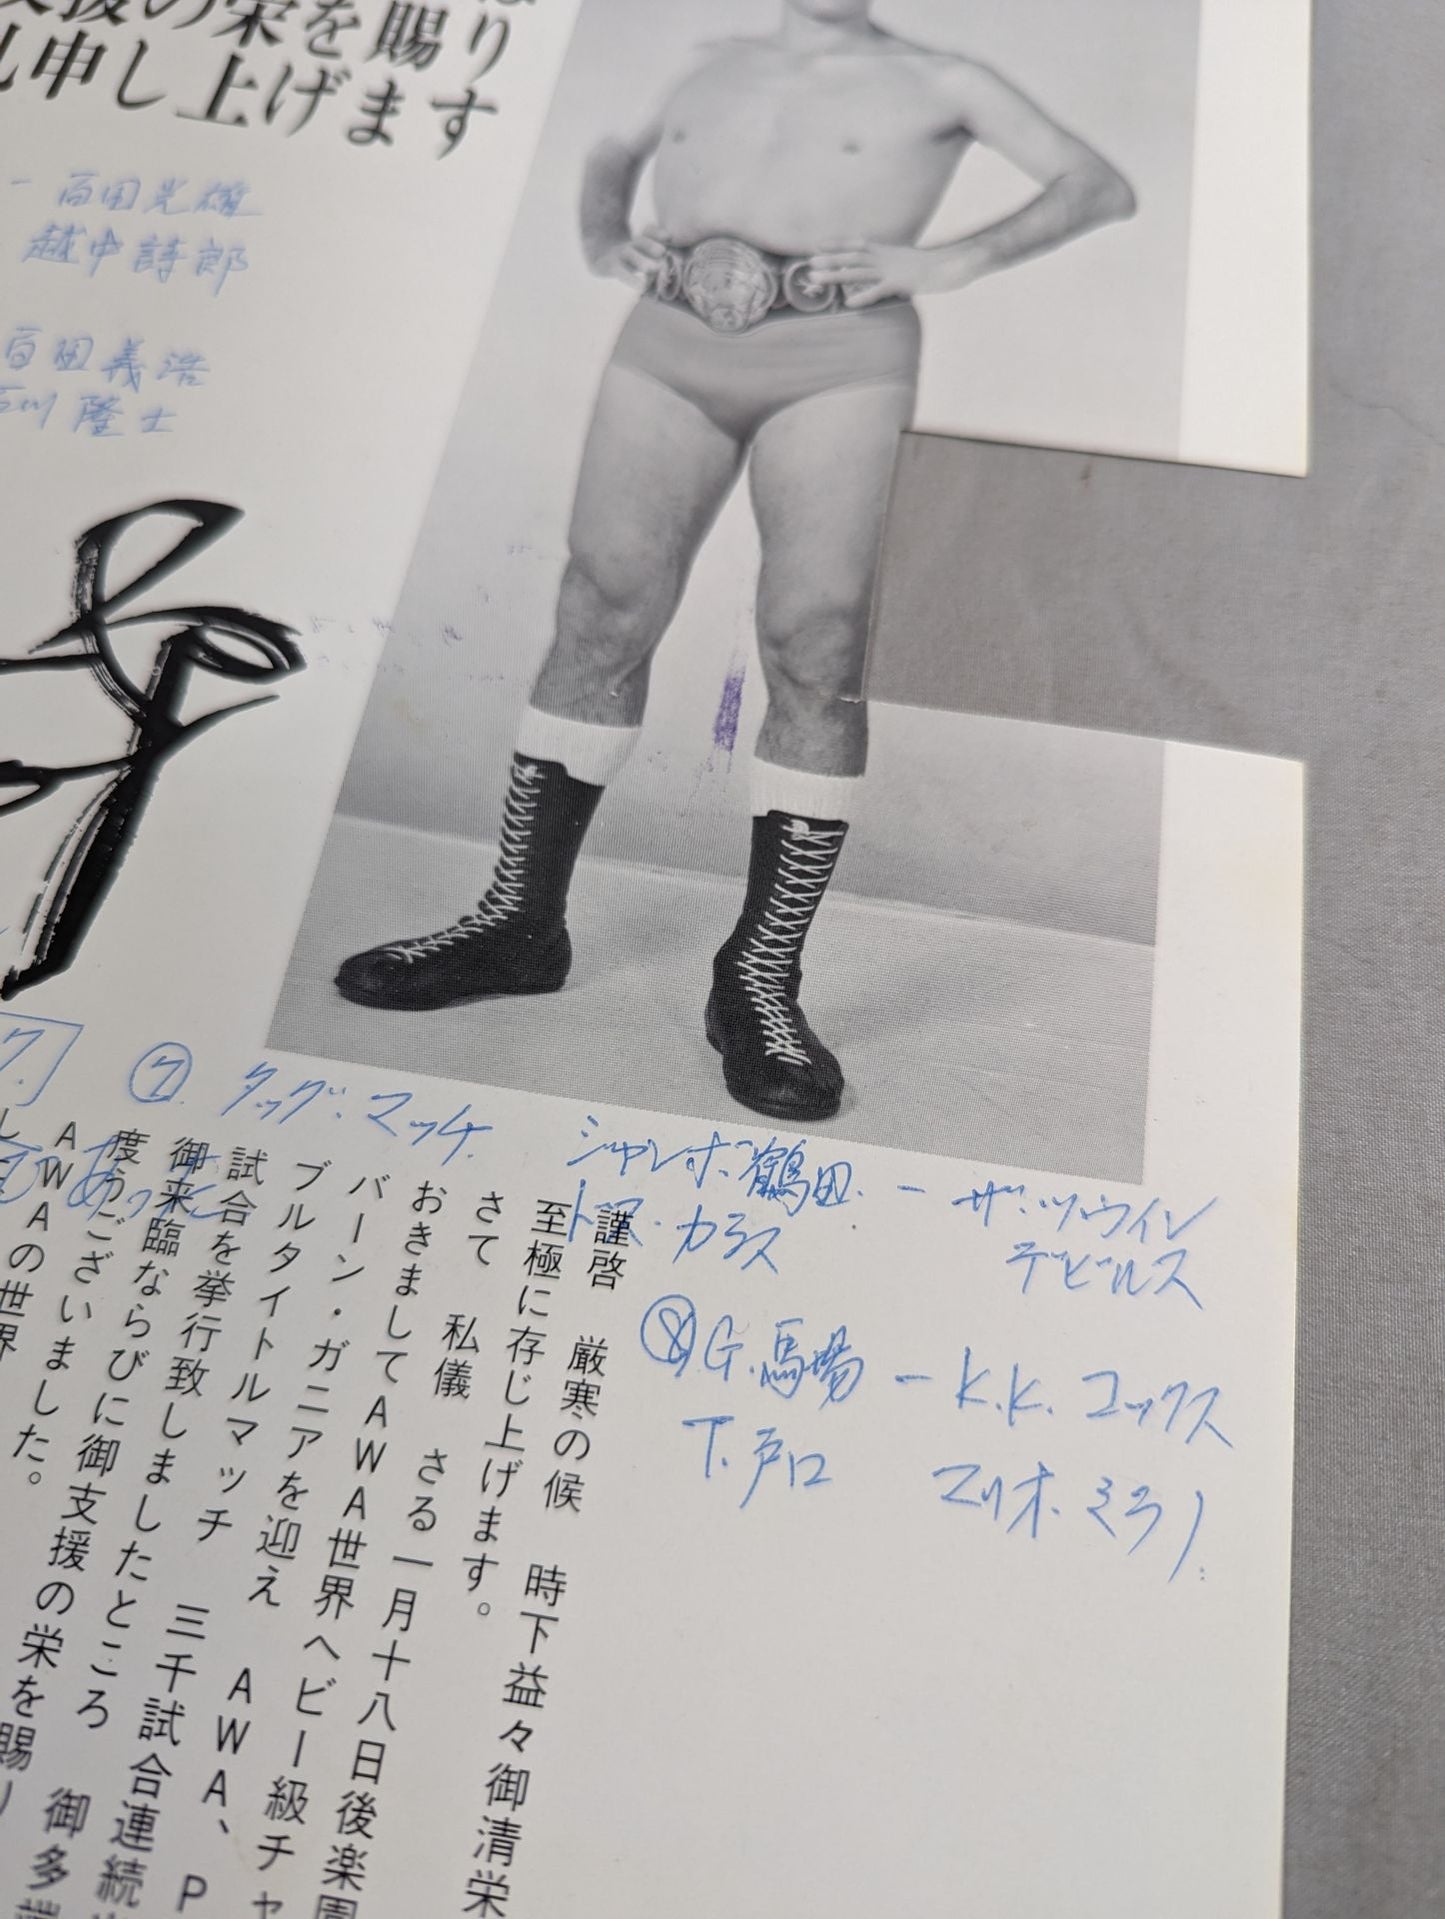 支援の栄を賜り
礼申し上げます
- 百田光雄
越中詩郎
百田義浩
石川隆士
⑦ タッグ・マッチ
シャンボ鶴田. - ザ・ツウイン
トマス・カラス デビルス
⑧ G.馬場 - K.K.コックス
T.戸口 マリオ.ミラノ
謹啓 厳寒の候 時下益々御清栄
至極に存じ上げます。
さて 私儀 さる一月十八日後楽園
おきましてAWA世界ヘビー級チャ
バーン・ガニアを迎え AWA、P
ブルタイトルマッチ 三千試合連続
試合を挙行致しましたところ 御多端
御来臨ならびに御支援の栄を賜り
度うございました。
AWAの世界